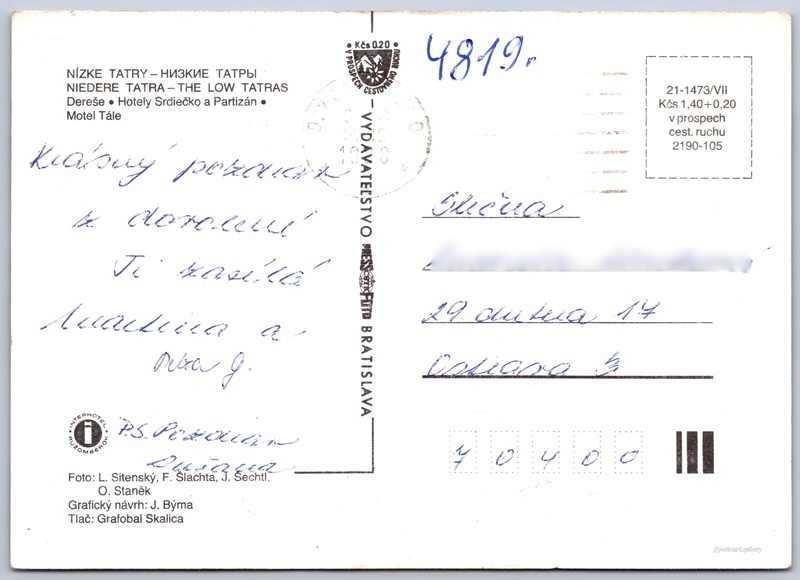 NÍZKE TATRY – НИЗКИЕ ТАТРЫ
NIEDERE TATRA – THE LOW TATRAS
Dereše • Hotely Srdiečko a Partizán •
Motel Tále
Krásný pozdrav
z dovolené
Ti zasílá
Martina a
P.S. Pozdrav
Dušana
INTERHOTEL RUŽOMBEROK
Foto: L. Sitenský, F. Šlachta, J. Šechtl,
O. Staněk
Grafický návrh: J. Býma
Tlač: Grafobal Skalica
Kčs 0.20
V PROSPECH CESTOVNÉHO RUCHU
VYDAVATEĽSTVO PRESSFOTO BRATISLAVA
4819.
21-1473/VII
Kčs 1,40+0,20
v prospech
cest. ruchu
2190-105
Slečna
29. dubna 17
Ostrava 3
70400